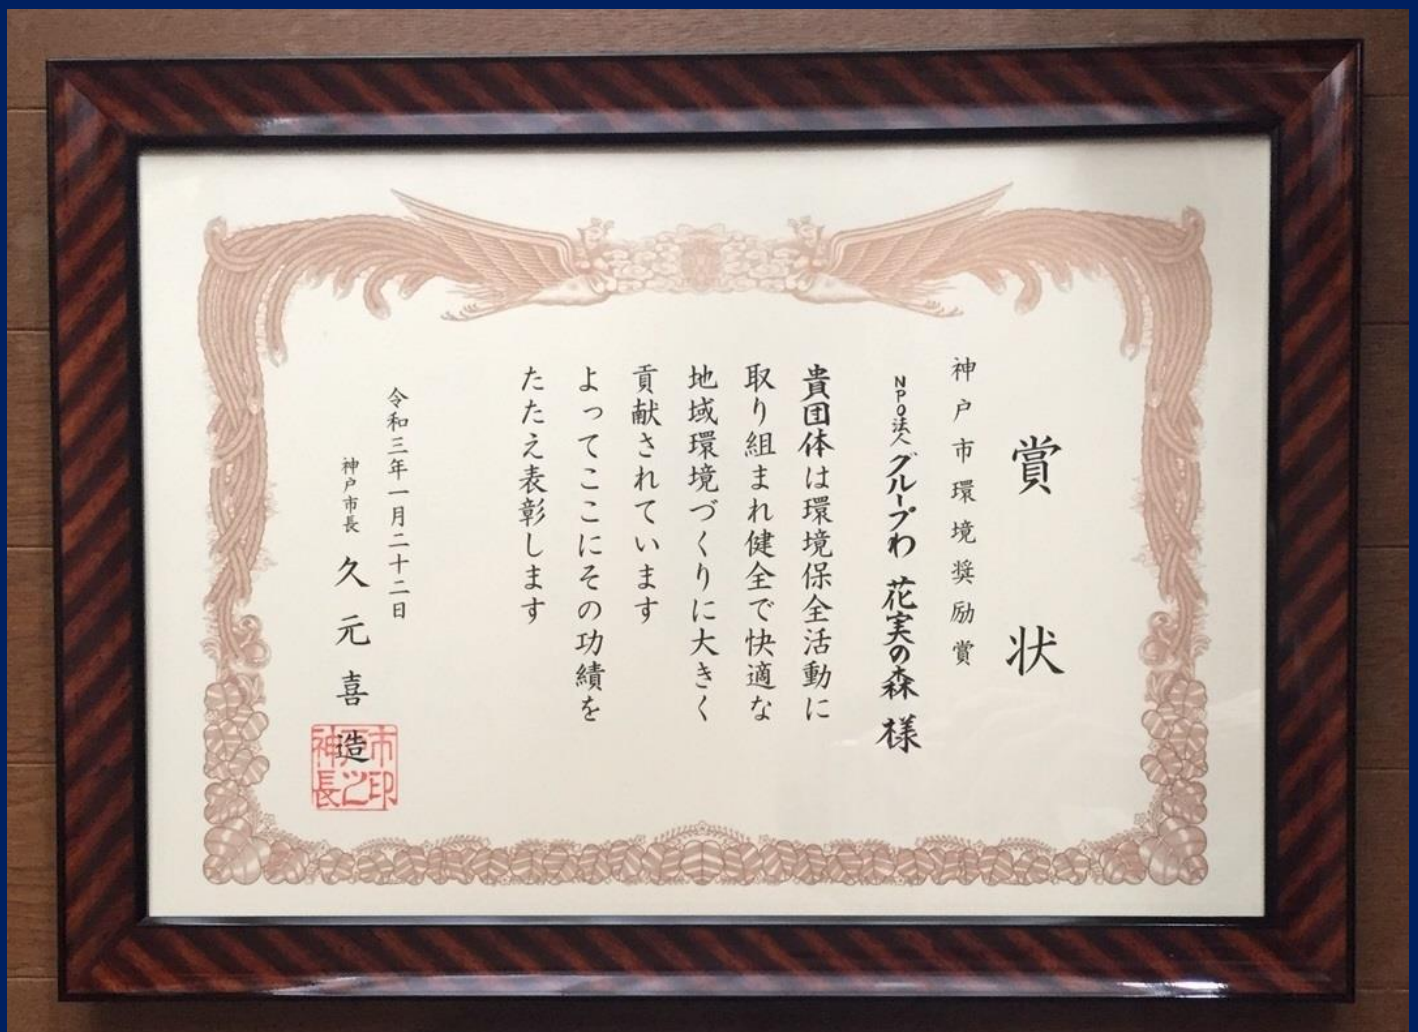 賞状
神戸市環境奨励賞
NPO法人グループわ 花実の森 様
貴団体は環境保全活動に
取り組まれ健全で快適な
地域環境づくりに大きく
貢献されています
よってここにその功績を
たたえ表彰します
令和三年一月二十二日
神戸市長 久元喜造
神戸市長之印